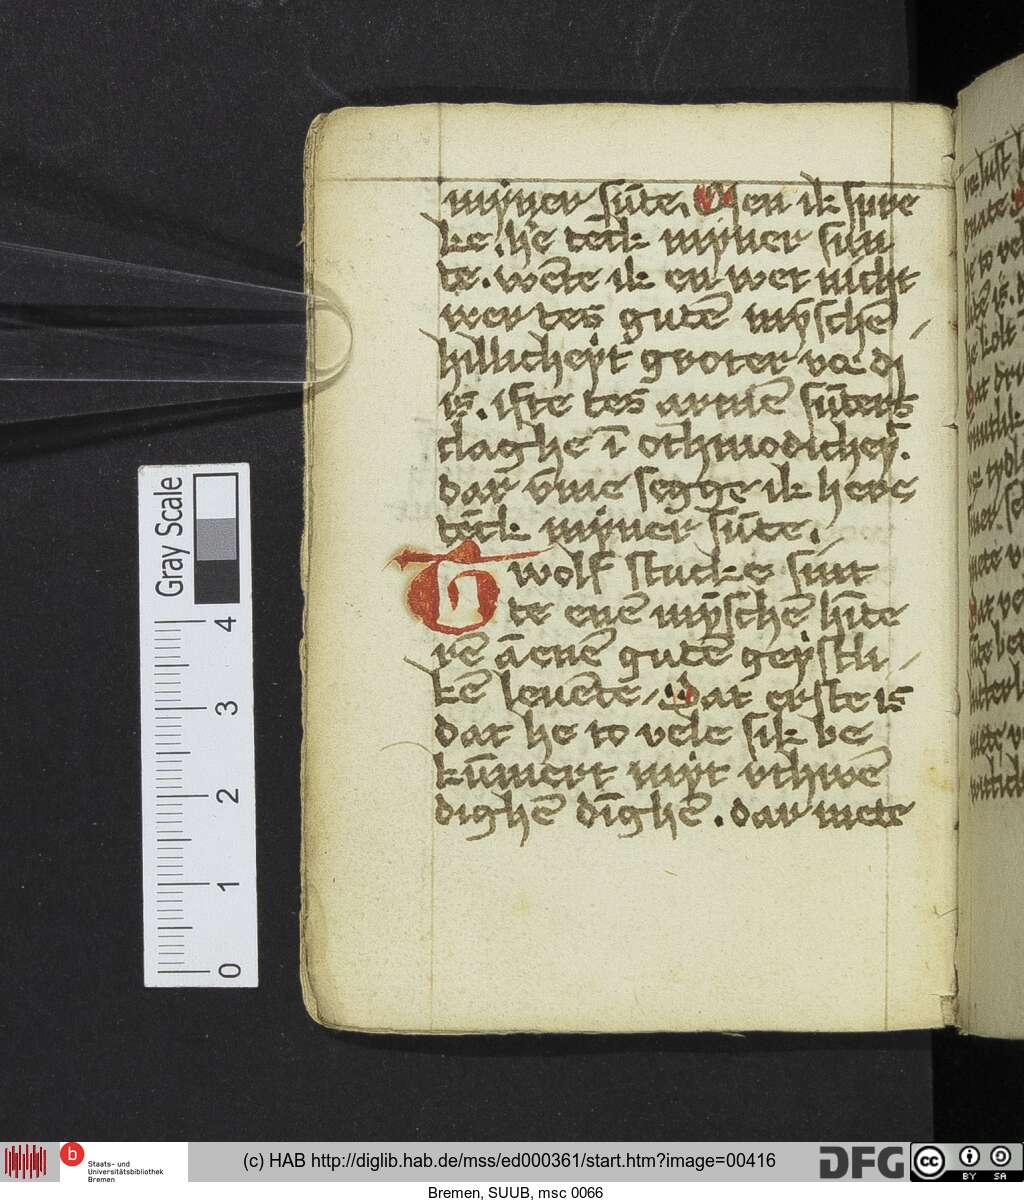 mÿner su̅te. Men ik spre
ke. he te̅ck mÿner sun
te. we̅te ik en wet nicht
wer tes gute̅ mÿsche̅
hillicheÿt groter vor di
is. ifte tes arme̅ su̅ters
claghe i̅ othmodicheÿ.
dar v̅me segge ik heve
te̅ck mÿner su̅te.
Twolf stucke sint
te ene̅ mÿsche̅ hi̅te
re̅ a̅ ene̅ gute̅ geÿstli
ke̅ leue̅te. Dat erste is
dat he to vele sik be
ku̅mert mÿt vthwe̅
dighe̅ di̅ghe̅. dar mete
Gray Scale
4
3
2
1
0
Staats- und
Universitätsbibliothek
Bremen
(c) HAB http://diglib.hab.de/mss/ed000361/start.htm?image=00416
DFG
cc
BY SA
Bremen, SUUB, msc 0066